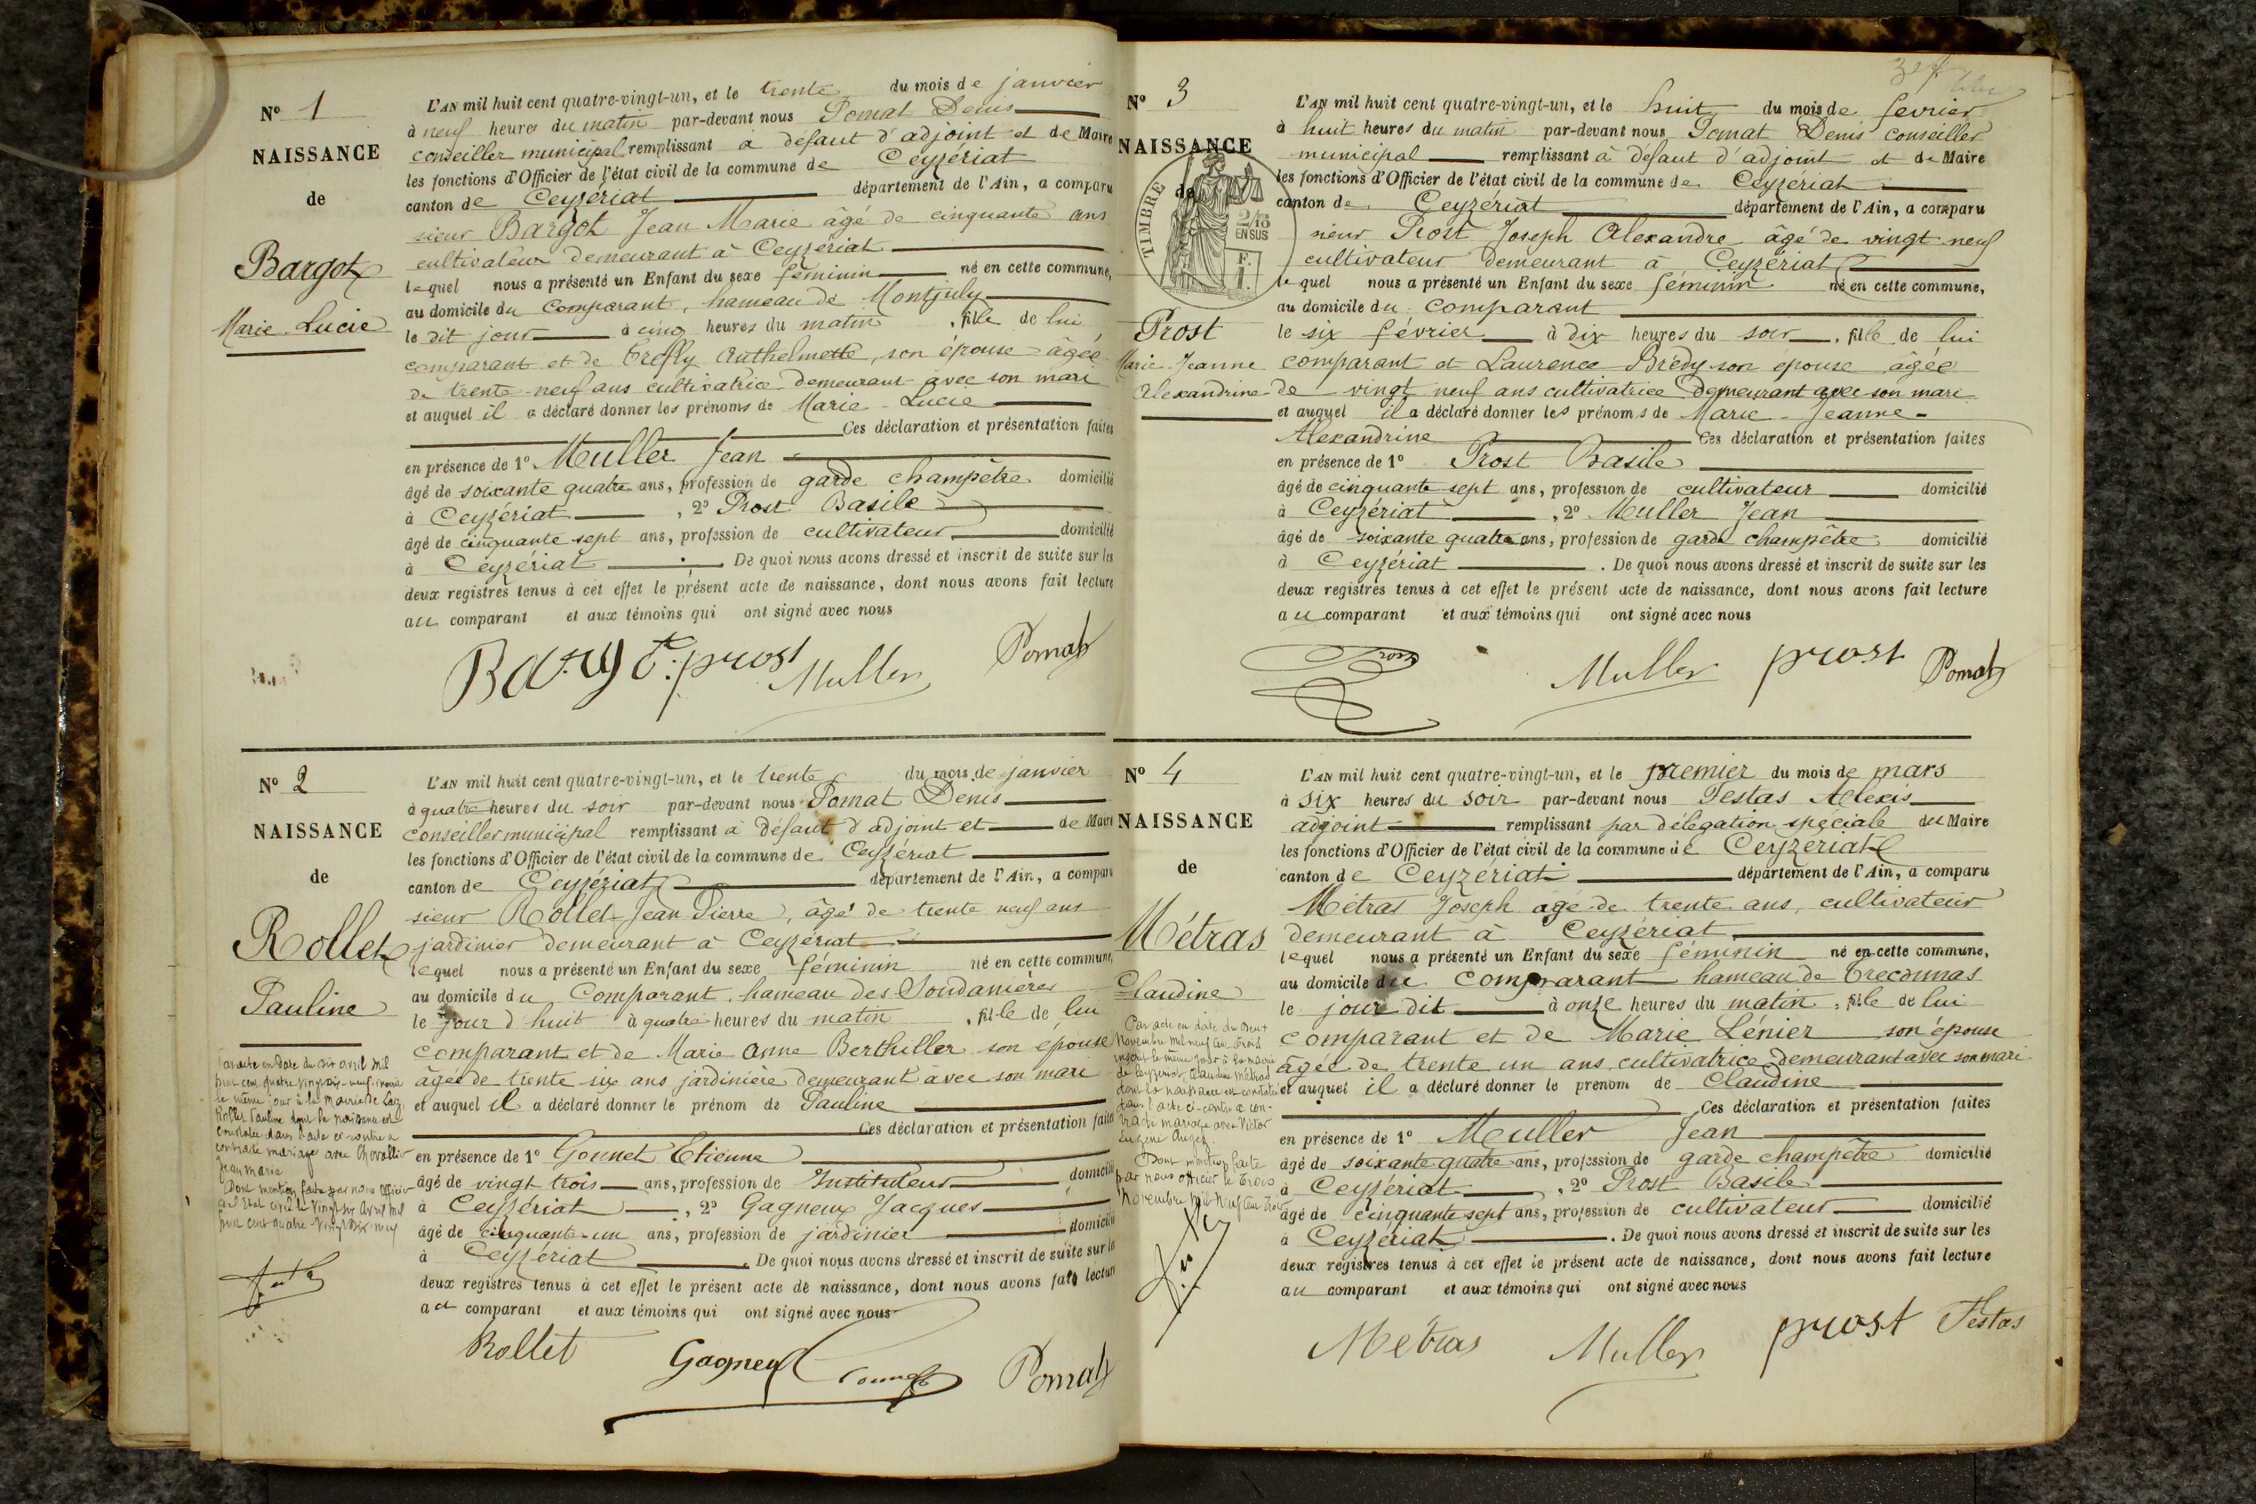 N° 1
NAISSANCE
de
Bargot
Marie Lucie
L'AN mil huit cent quatre-vingt-un, et le trente du mois de janvier
à neuf heures du matin par-devant nous Pomat Denis
conseiller municipal remplissant à défaut d'adjoint et de Maire
les fonctions d'Officier de l'état civil de la commune de Ceyzériat
canton de Ceyzériat département de l'Ain, a comparu
sieur Bargot Jean Marie âgé de cinquante ans
cultivateur demeurant à Ceyzériat
lequel nous a présenté un Enfant du sexe féminin né en cette commune,
au domicile du comparant, hameau de Montjuly
le dit jour à cinq heures du matin, fille de lui
comparant et de Anthelmette, son épouse âgée
de trente neuf ans cultivatrice demeurant avec son mari
et auquel il a déclaré donner les prénoms de Marie Lucie
Ces déclaration et présentation faites
en présence de 1° Muller Jean
âgé de soixante quatre ans, profession de garde champêtre domicilié
à Ceyzériat, 2° Prost Basile
âgé de cinquante sept ans, profession de cultivateur domicilié
à Ceyzériat. De quoi nous avons dressé et inscrit de suite sur les
deux registres tenus à cet effet le présent acte de naissance, dont nous avons fait lecture
au comparant et aux témoins qui ont signé avec nous
Bargot prost Muller Pomat
N° 2
NAISSANCE
de
Rollet
Pauline
Par acte en date du six avril mil
huit cent quatre vingt dix-neuf, inscrit
le même jour à la Mairie de
Rollet Pauline dont la naissance est
constatée dans l'acte ci-contre a
contracté mariage avec Chevallier
Jean Marie
Dont mention faite par nous Officier
de l'Etat civil le vingt six Avril mil
huit cent quatre vingt dix neuf
L'AN mil huit cent quatre-vingt-un, et le trente du mois de janvier
à quatre heures du soir par-devant nous Pomat Denis
conseiller municipal remplissant à défaut d'adjoint et de Maire
les fonctions d'Officier de l'état civil de la commune de Ceyzériat
canton de Ceyzériat département de l'Ain, a comparu
sieur Rollet Jean Pierre, âgé de trente neuf ans
jardinier demeurant à Ceyzériat
lequel nous a présenté un Enfant du sexe féminin né en cette commune,
au domicile du comparant, hameau des Soudanières
le jour d'huit à quatre heures du matin, fille de lui
comparant et de Marie Anne Berthiller son épouse
âgée de trente six ans jardinière demeurant avec son mari
et auquel il a déclaré donner le prénom de Pauline
Ces déclaration et présentation faites
en présence de 1° Gonnet Etienne
âgé de vingt trois ans, profession de Instituteur domicilié
à Ceyzériat, 2° Gagneux Jacques
âgé de cinquante-un ans, profession de jardinier domicilié
à Ceyzériat. De quoi nous avons dressé et inscrit de suite sur les
deux registres tenus à cet effet le présent acte de naissance, dont nous avons fait lecture
au comparant et aux témoins qui ont signé avec nous
Rollet Gagneux Gonnet Pomat
N° 3
NAISSANCE
de
TIMBRE
2/10
EN SUS
F.
1.
Prost
Marie Jeanne
Alexandrine
L'AN mil huit cent quatre-vingt-un, et le huit du mois de février
à huit heures du matin par-devant nous Pomat Denis conseiller
municipal remplissant à défaut d'adjoint et de Maire
les fonctions d'Officier de l'état civil de la commune de Ceyzériat
canton de Ceyzériat département de l'Ain, a comparu
sieur Prost Joseph Alexandre âgé de vingt neuf
cultivateur demeurant à Ceyzériat
lequel nous a présenté un Enfant du sexe féminin né en cette commune,
au domicile du comparant
le six février à dix heures du soir, fille de lui
comparant et Laurence Brédy son épouse âgée
de vingt neuf ans cultivatrice demeurant avec son mari
et auquel il a déclaré donner les prénoms de Marie-Jeanne-
Alexandrine Ces déclaration et présentation faites
en présence de 1° Prost Basile
âgé de cinquante sept ans, profession de cultivateur domicilié
à Ceyzériat, 2° Muller Jean
âgé de soixante quatre ans, profession de garde champêtre domicilié
à Ceyzériat. De quoi nous avons dressé et inscrit de suite sur les
deux registres tenus à cet effet le présent acte de naissance, dont nous avons fait lecture
au comparant et aux témoins qui ont signé avec nous
Prost Muller prost Pomat
N° 4
NAISSANCE
de
Métras
Claudine
Par acte en date du
Novembre mil neuf cent trois
inscrit le même jour à la mairie
de Ceyzériat, Claudine Métras
dont la naissance est constatée
dans l'acte ci-contre a con-
tracté mariage avec Victor
Eugène
Dont mention faite
par nous officier le trois
Novembre mil neuf cent trois
L'AN mil huit cent quatre-vingt-un, et le premier du mois de mars
à six heures du soir par-devant nous Testas Alexis
adjoint remplissant par délégation spéciale du Maire
les fonctions d'Officier de l'état civil de la commune de Ceyzériat
canton de Ceyzériat département de l'Ain, a comparu
Métras Joseph âgé de trente ans, cultivateur
demeurant à Ceyzériat
lequel nous a présenté un Enfant du sexe féminin né en cette commune,
au domicile du comparant hameau de Treconnas
le jour dit à onze heures du matin, fille de lui
comparant et de Marie Lénier son épouse
âgée de trente un ans, cultivatrice demeurant avec son mari
et auquel il a déclaré donner le prénom de Claudine
Ces déclaration et présentation faites
en présence de 1° Muller Jean
âgé de soixante quatre ans, profession de garde champêtre domicilié
à Ceyzériat, 2° Prost Basile
âgé de cinquante sept ans, profession de cultivateur domicilié
à Ceyzériat. De quoi nous avons dressé et inscrit de suite sur les
deux registres tenus à cet effet le présent acte de naissance, dont nous avons fait lecture
au comparant et aux témoins qui ont signé avec nous
Métras Muller prost Testas